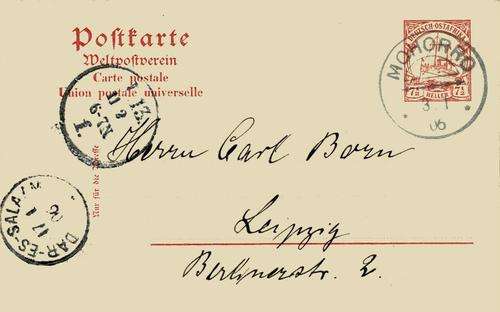 Postkarte
Weltpostverein
Carte postale
Union postale universelle
DEUTSCH-OSTAFRIKA
7½ 7½
HELLER
MOHORRO
3. 1
06
11 2
6-7N
1.
Nur für die Adresse
DAR-ES-SALAAM
17 1
06
Herrn Carl Born
Leipzig
Berlinerstr. 2.